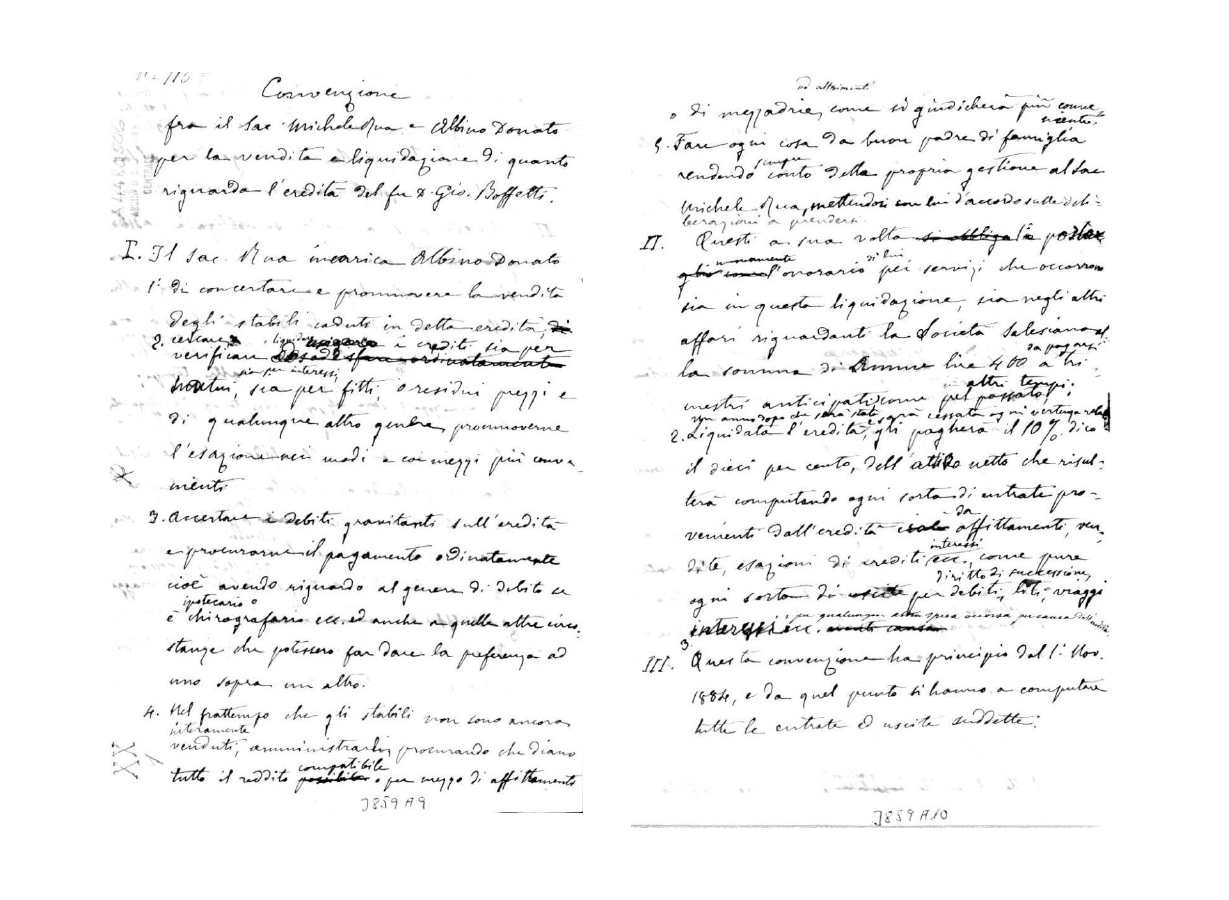 Convenzione
fra il Sac Michele Rua e Albino Donato
per la vendita e liquidazione di quanto
riguarda l'eredità del fu D. Gio. Boffetti.
I. Il Sac. Rua incarica Albino Donato
1° di concertare e promuovere la vendita
degli stabili caduti in detta eredità, di
2. verificare i crediti sia per
sia per interessi,
mutui, sia per fitti, o residui prezzi e
di qualunque altro genere, promuoverne
l'esazione nei modi e coi mezzi più conve-
nienti
3. Accertare i debiti gravitanti sull'eredità
e procurarne il pagamento ordinatamente
cioè avendo riguardo al genere di debito se
ipotecario o
è chirografario ecc. ed anche a quelle altre circo-
stanze che potessero far dare la preferenza ad
uno sopra un altro.
4. Nel frattempo che gli stabili non sono ancora
interamente
venduti, amministrarli, procurando che diano
compatibile
tutto il reddito possibile o per mezzo di affittamento
J859A9
od altrimenti
o di mezzadria, come si giudicherà più conve
niente.
5. Fare ogni cosa da buon padre di famiglia
sempre
rendendo conto della propria gestione al Sac
Michele Rua, mettendosi con lui d'accordo sulle deli-
berazioni a prendersi.
II. Questi a sua volta si obbliga
annuamente di lui
l'onorario pei servizi che occorrono
sia in questa liquidazione, sia negli altri
affari riguardanti la Società Salesiana
da pagarsi
la somma di annue lire 400 a tri-
in altri tempi.
mestri anticipati come pel passato;
2. Liquidata l'eredità, gli pagherà il 10% dico
il dieci per cento, dell'attivo netto che risul-
terà computando ogni sorta di entrate pro-
da
venienti dall'eredità affittamenti, ven-
interessi
dite, esazioni di crediti, ecc., come pure
diritto di successione,
ogni sorta di uscite per debiti, liti, viaggi
interessi ecc.
III. Questa convenzione ha principio dal 1° Nov.
1884, e da quel punto si hanno a computare
tutte le entrate ed uscite suddette.
J859A10